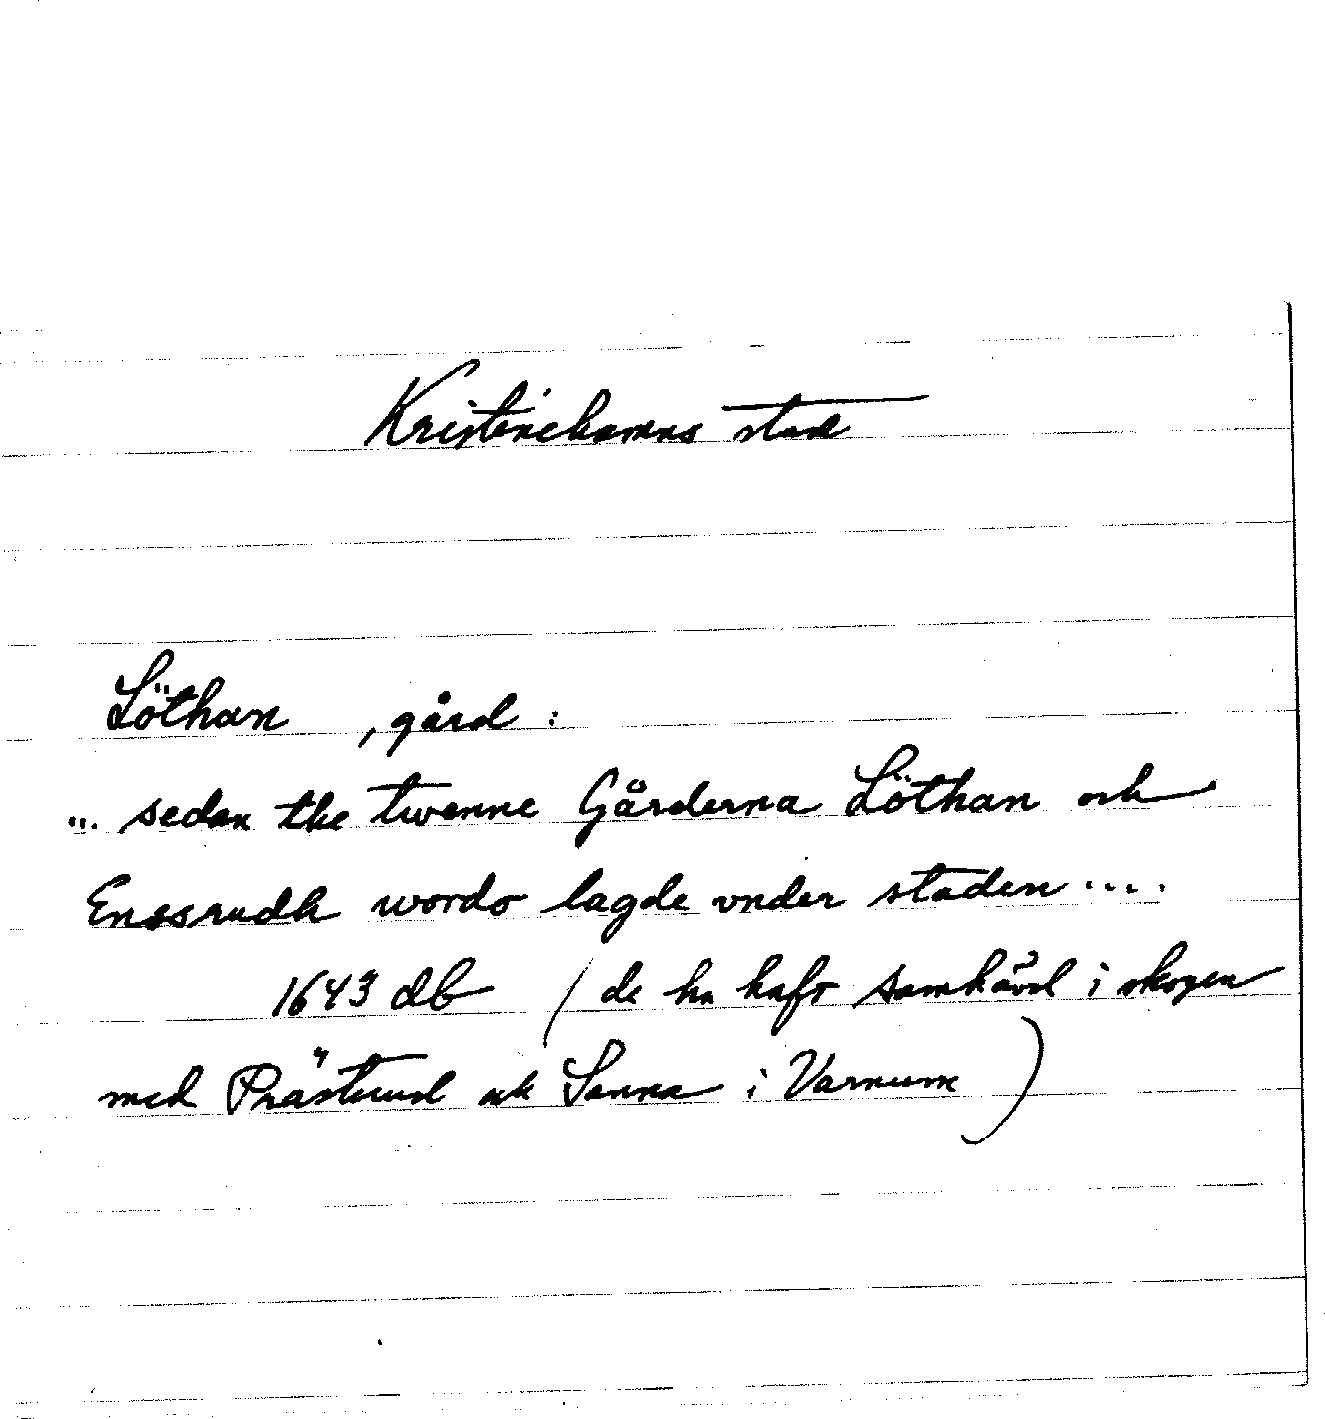 Kristinehamns stad
Löthan , gård :
... sedan the twenne Gårderna Löthan och
Enesrudh wordo lagde vnder staden ....
1643 db ( de ha haft samhävd i skogen
med Prästerud och Sanna i Varnum )